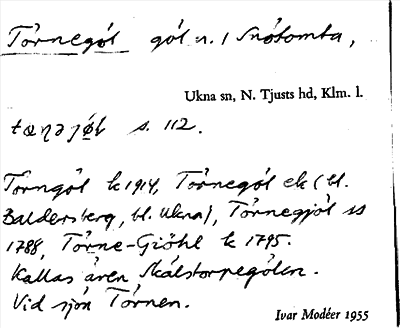 Törnegöl göl n. / Snötomta,
Ukna sn, N. Tjusts hd, Klm. l.
tœɳəjö́l s. 112.
Törngöl k 1914, Törnegöl ek (bl.
Baldersberg, bl. Ukna), Törnegjöl ss
1788, Törne-Giöhl k 1795.
Kallas även Skälstorpegölen.
Vid sjön Törnen.
Ivar Modéer 1955